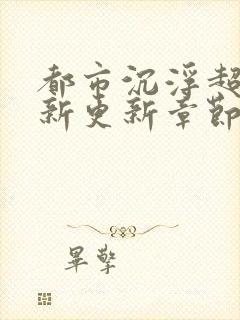 都市沉浮超
新更新章节
畢擎